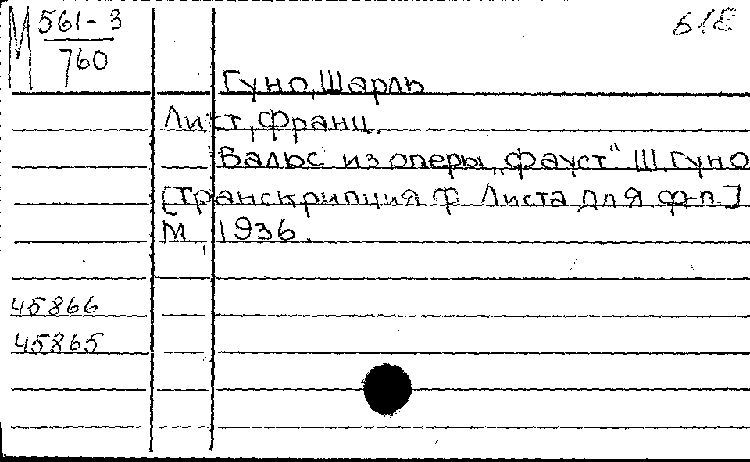 М 561-3
760
б/Е
Гуно, Шарль
Лист, Франц.
Вальс из оперы „Фауст“ Ш. Гуно
[Транскрипция Ф. Листа для ф-п.]
М., 1936.
45866
45865